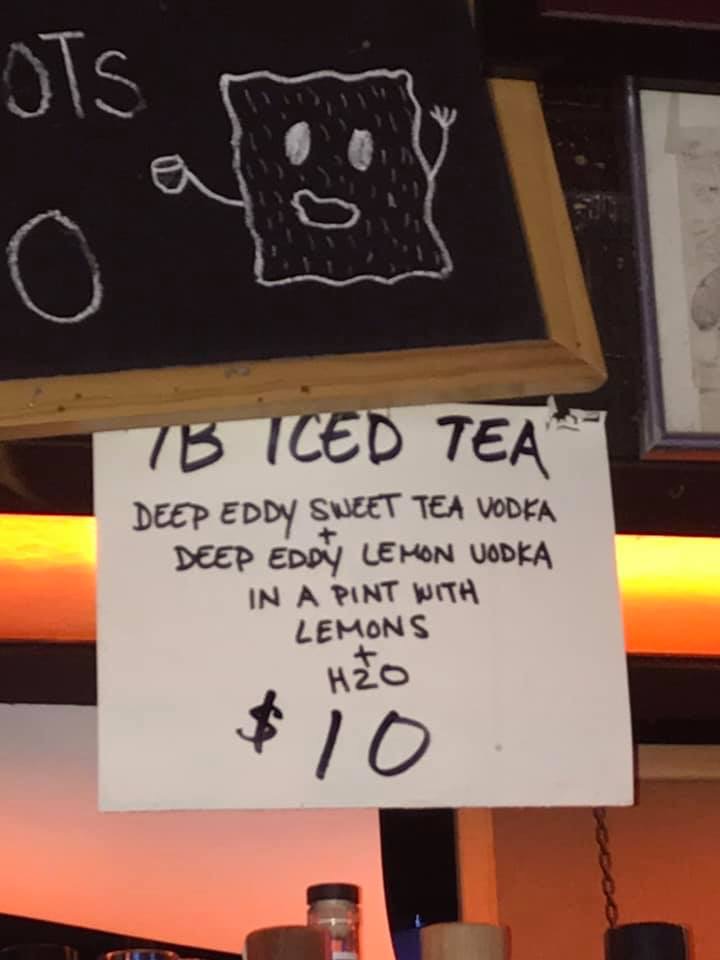 OTS
O
IB ICED TEA
DEEP EDDY SWEET TEA VODKA
+
DEEP EDDY LEMON VODKA
IN A PINT WITH
LEMONS
+
H2O
$10